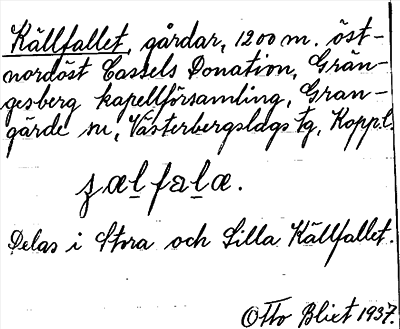 Källfallet, gårdar, 1200 m. öst-
nordöst Cassels Donation, Grän-
gesberg kapellförsamling, Gran-
gärde sn, Västerbergslags tg, Koppl.
Delas i Stora och Lilla Källfallet.
Otto Blixt 1937.